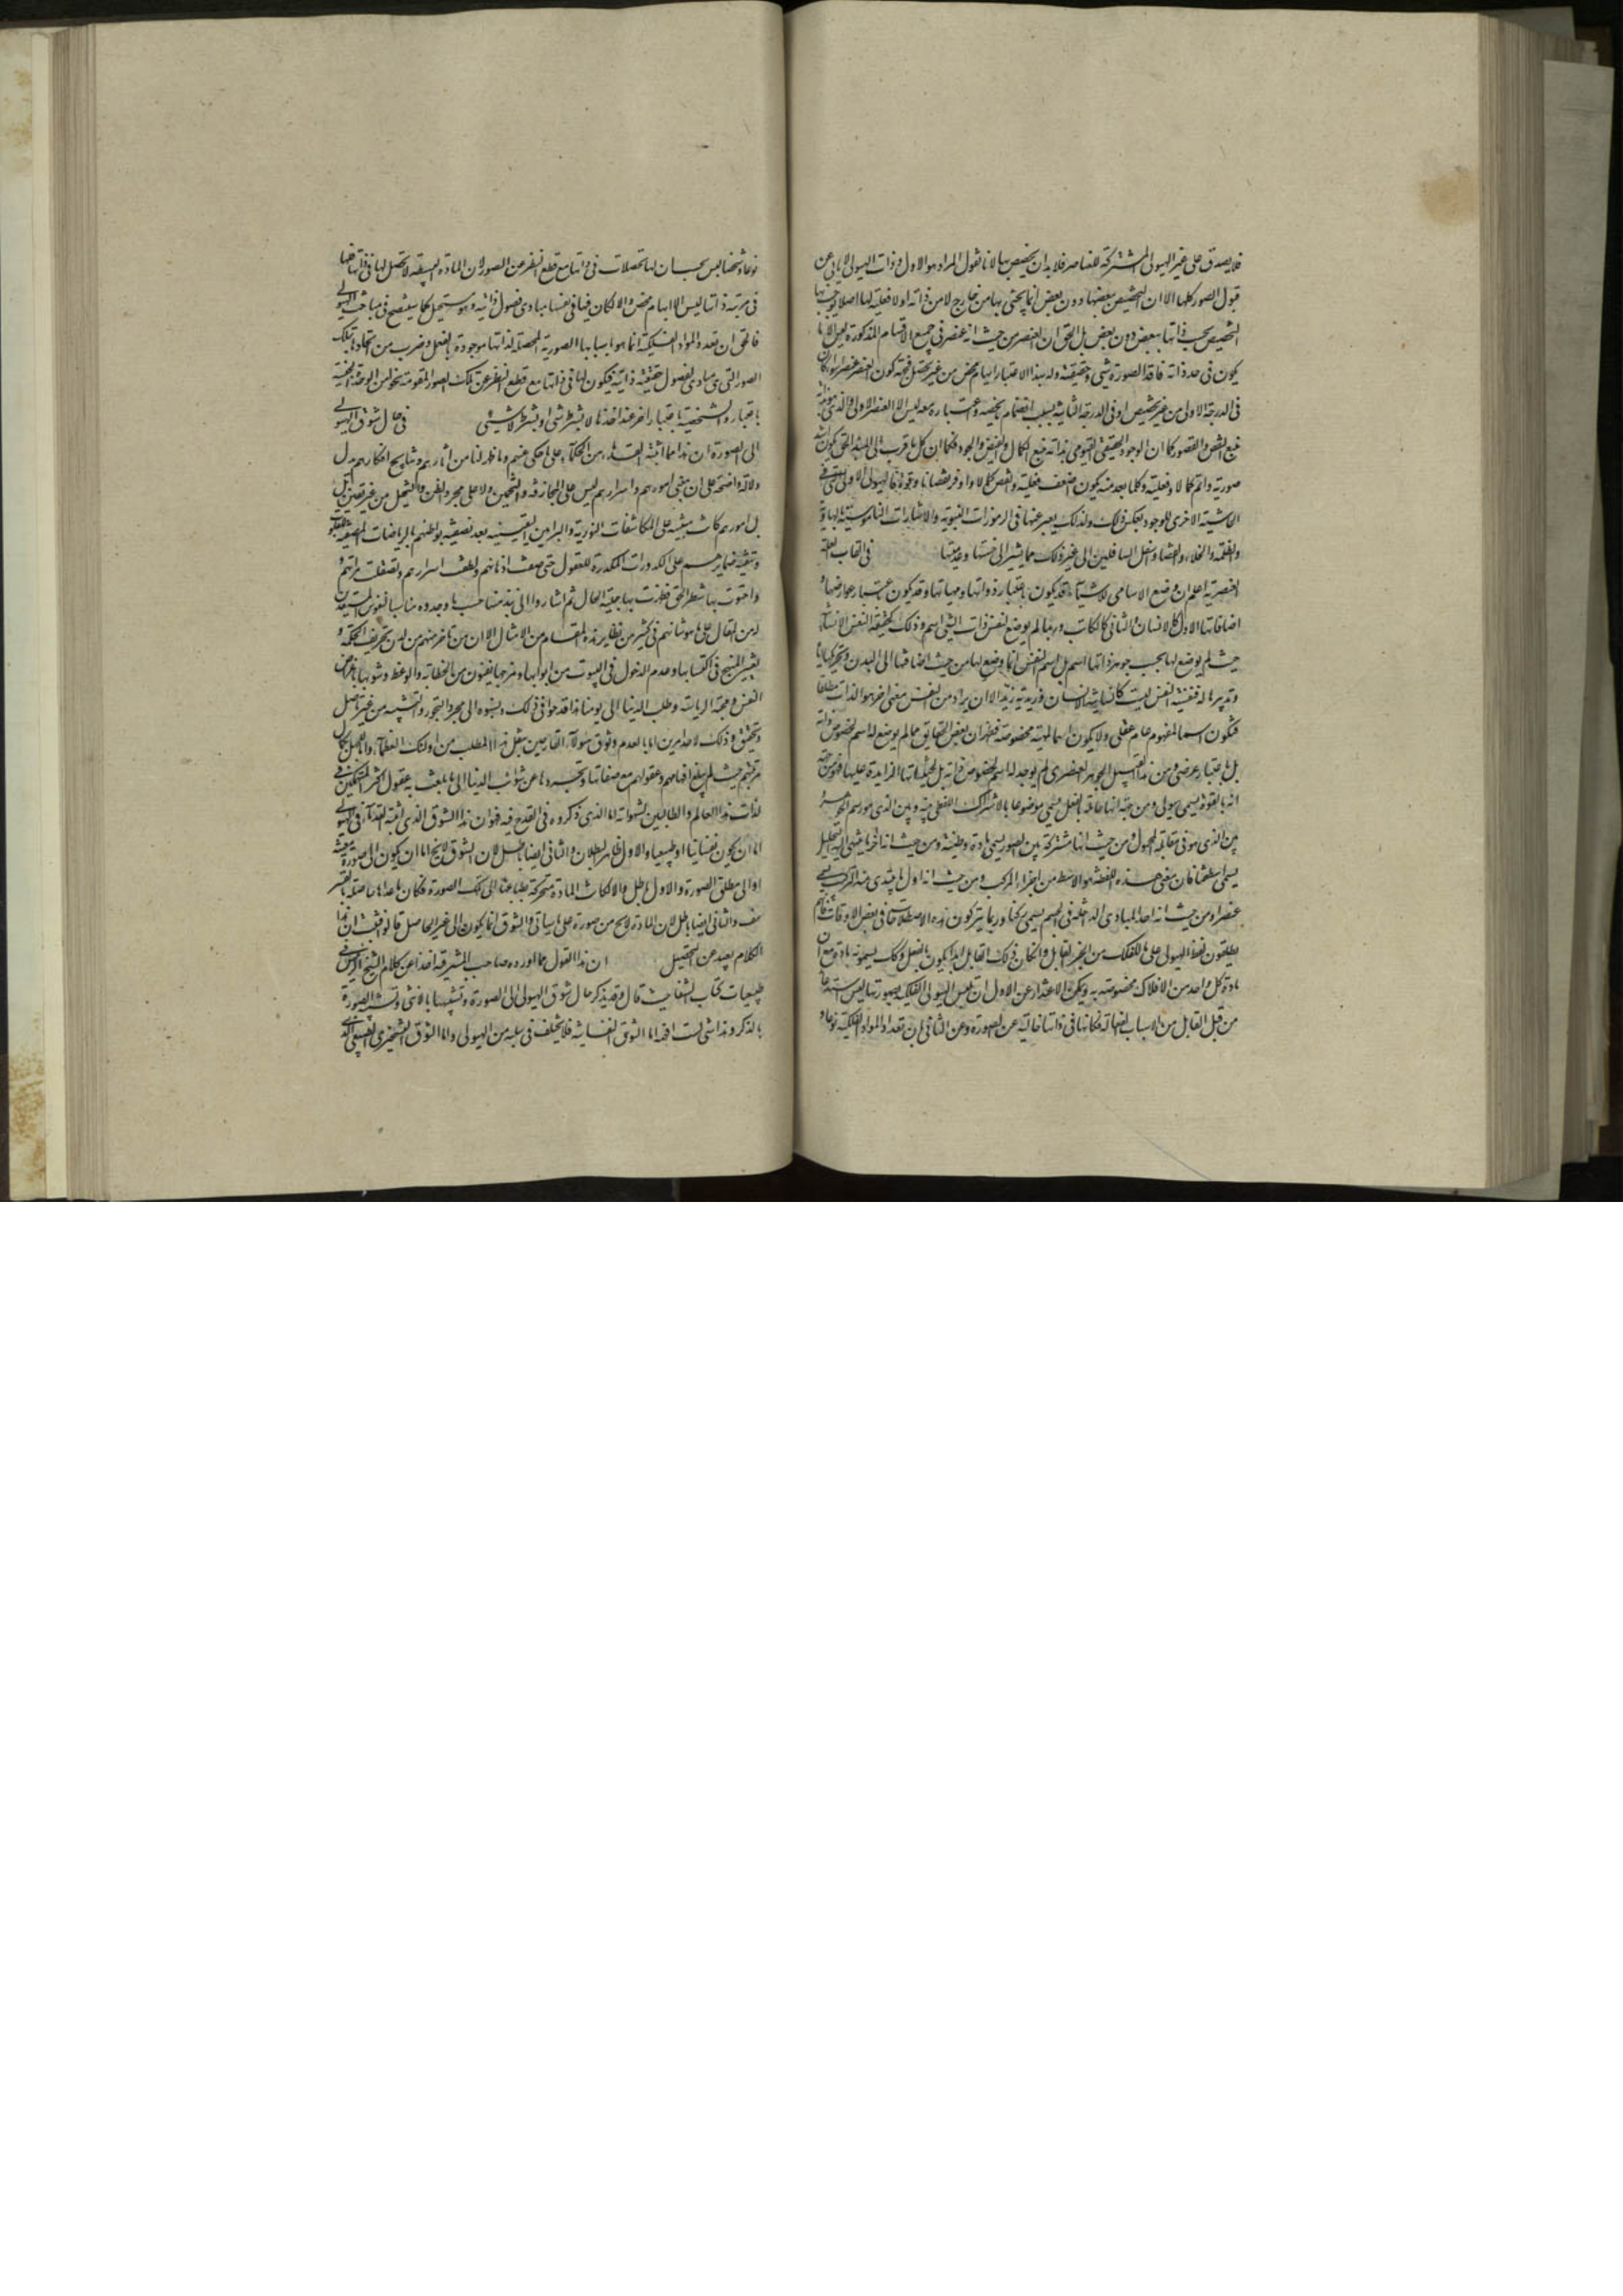 فلا يصدق على غير الهيولى المشتركة للعناصر فلا بد ان يخصص بها لانا نقول المراد هو الاول و ذات الهيولى لا يابى عن
قبول الصور كلها الا ان التخصيص ببعضها دون بعض انما يجئ بها من خارج لا من ذاته اذ لا فعلية لها اصلا يوجب بها
التخصيص بحسب ذاتها ببعض دون بعض بل الحق ان العنصر من حيث انه عنصر فى جميع الاقسام المذكورة ليس الا ما
يكون فى حد ذاته فاقد الصورة شئ و حقيقته وله بهذا الاعتبار ابهام محض من غير تحصل فجهة كون العنصر عنصرا سواء كان
فى الدرجة الاولى من غير تخصيص او فى الدرجة الثانية بسبب انضمام ما يخصصه و اعتباره معه ليس الا العنصر الاولى والذى هو
منبع النقص والقصور كما ان الوجود الحقيقى القيومى بذاته منبع الكمال والفيض والجود فكما ان كل ما قرب الى المبدء الحق يكون اشد
صورية واتم كمالا و فعلية وكلما بعد منه يكون اضعف فعلية وانقص كمالا واوفر نقصانا و قوة فالهيولى الاولى التى هى فى
الحاشية الاخرى للوجود بعكس ذلك ولذلك يعبر عنها فى الرموزات النبوية والاشارات الناموسية بالهاوية
والظلمة والخلاء والفضاء و اسفل السافلين الى غير ذلك مما يشير الى خستها و عدميتها فى القاب العلة
العنصرية اعلم ان وضع الاسامى للاشياء قد يكون باعتبار ذواتها و مهياتها و قد يكون باعتبار عوارضها و
اضافاتها الاول كالانسان والثانى كالكاتب و ربما لم يوضع لنفس ذات الشئ اسم و ذلك كحقيقة النفس الانسانية
حيث لم يوضع لها بحسب جوهر ذاتها اسم بل اسم النفس انما وضع لها من حيث اضافتها الى البدن و تحريكها اياه
و تدبيرها له فنفسية النفس ليست كانسانية الانسان و زيدية زيد الا ان يراد من النفس معنى اخر هو الذات مطلقا
فيكون اسما لمفهوم عام عقلى ولا يكون اسما لمهية مخصوصة فظهر ان بعض الحقايق مما لم يوضع له اسم لخصوص ذاته
بل باعتبار عرضى و من هذا القبيل الجوهر العنصرى لم يوجد له اسم لخصوص ذاته بل لحيثياتها الزايدة عليها فمن جهة
انه بالقوة يسمى هيولى و من جهة انها حاملة بالفعل يسمى موضوعا بالاشتراك اللفظى بينه و بين الذى هو رسم الجوهر
و بين الذى هو فى مقابلة المحمول و من حيث انها مشتركة بين الصور يسمى مادة و طينة و من حيث انه اخر ما ينتهى اليه التحليل
يسمى اسطقسا فان معنى هذه اللفظة هو الابسط من اجزاء المركب و من حيث انه اول ما يبتدى منه التركيب يسمى
عنصرا و من حيث انه احد المبادى الداخلة فى الجسم يسمى ركنا و ربما يتركون هذه الاصطلاحات فى بعض الاوقات فانهم
يطلقون لفظ الهيولى على ما للفلك من الجزء القابل وان كان ذلك القابل ابدا يكون بالفعل و كك يسمونه مادة مع ان
مادة كل واحد من الافلاك مخصوصة به و يمكن الاعتذار عن الاول ان تلبس الهيولى الفلكية بصورتها ليس استدعاء
من قبل القابل من الاسباب الفعالة فكانها فى ذاتها خالية عن الصورة و عن الثانى ان تعدد المواد الفلكية نوعا و
نوعا او شخصا ليس بحسب ان لها تحصلات فى ذاتها مع قطع النظر عن الصور لان المادة البسيطة لا تحصل لها فى ذاتها فانها
فى مرتبة ذاتها ليس الا ابهام محض والا لكان فيها فى نفسها مبادى فصول ذاتية و هو مستحيل كما سيتضح فى مباحث الهيولى
فالحق ان تعدد المواد الفلكية انما هو باسبابها الصورية المحصلة لذاتها موجودة بالفعل و ضرب من اتحادها بتلك
الصور التى هى مبادى لفصول حقيقية ذاتية فيكون لها فى ذاتها مع قطع النظر عن تلك الصور المقومة نحو من الوحدة الجنسية
باعتبار والشخصية باعتبار اخر عند اخذها لا بشرط شئ او بشرط لا شئ فى حال شوق الهيولى
الى الصورة ان هذا مما اثبته القدماء من الحكماء على ما حكى عنهم و ما ظهر لنا من اثارهم و نتايج افكارهم يدل
دلالة واضحة على ان مبنى امورهم و اسرارهم ليس على المجازفة والتخمين ولا على مجرد الظن والتخيل من غير يقين
بل امورهم كانت مبنية على المكاشفات النورية والبراهين اليقينية بعد تصفية بواطنهم بالرياضات المصفية للقلوب
و تنقية ضمايرهم على الكدورات المكدرة للعقول حتى صفت اذهانهم و لطفت اسرارهم و تصقلت مراتهم
واحتوت بها شطر الحق فظهرت بها جلية الحال ثم اشاروا الى نبذ منها حسب ما وجدوه مناسبا لنفوس المستعدين
من المقال على ما هو شانهم فى كثير من نظاير هذا المقام من الامثال الا ان من تاخر منهم من لدن تحريف الحكمة و
تغيير المنهج فى اكتسابها و عدم الدخول فى البيوت من ابوابها و مزجها بفنون من الخطابة والوعظ و شوبها باغراض
النفس و محبة الرياسة و طلب الدنيا الى يومنا هذا قدحوا فى ذلك و نسبوه الى مجرد التجوز والتشبيه من غير اصل
و تحقيق و ذلك لاحد امرين اما لعدم وثوق هولاء القادحين بنيل هذا المطلب من اولئك العظماء
مرتبتهم حيث لم يبلغ افهامهم و عقولهم مع صفائها و تجردها عن شوائب الدنيا الى ما بلغت اليه عقول اكثر المتهمكين فى
لذات هذا العالم والطالبين لشهواته اما الذى ذكروه فى القدح فيه فهو ان هذا الشوق الذى اثبته القدماء فى الهيولى
اما ان يكون نفسانيا او طبيعيا والاول ظاهر البطلان والثانى ايضا باطل لان الشوق لا يخ اما ان يكون الى صورة معينة
او الى مطلق الصورة والاول باطل والا لكانت المادة متحركة بطباعها الى تلك الصورة فكان ما عداها حاصلة بالقسر
هف والثانى ايضا باطل لان المادة لا يخ من صورة على ما سياتى والشوق انما يكون الى غير الحاصل قالوا فثبت ان هذا
الكلام بعيد عن التحصيل ان هذا القول مما اورده صاحب المشرقية اخذا من كلام الشيخ الرئيس فى
طبيعيات كتاب الشفا حيث قال و قد يذكر حال شوق الهيولى الى الصورة و تشبهها بالانثى و تشبه الصورة
بالذكر و هذا شئ لست افهمه اما الشوق النفسانية فلا يختلف فى سلبه من الهيولى واما الشوق التسخيرى الطبيعى الذى